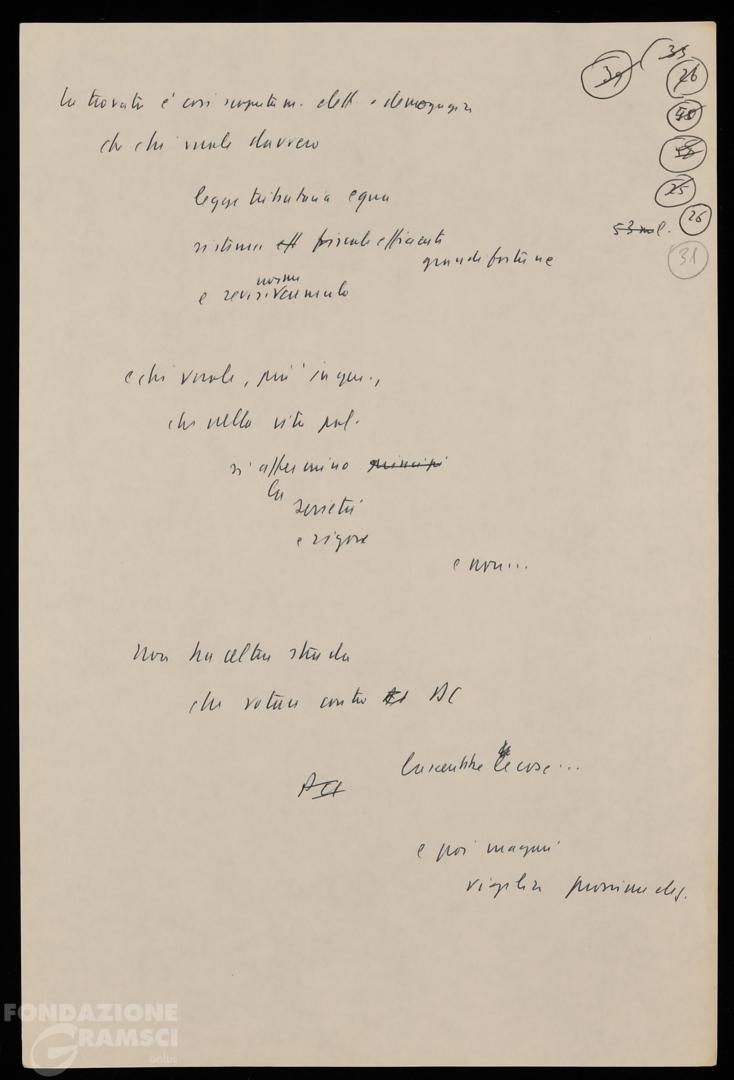 39 35
26
La trovata è così scopertam. elett. e demagogica
40
che chi vuole davvero
38
25
legge tributaria equa
53 mil. 26
sistema eff fiscale efficiente
grandi fortune
31
norme
e
e chi vuole, più in gen.,
che nella vita pol.
si affermino principi
la
serietà
e rigore
e non...
Non ha altra strada
che votare contro DC
lascerebbe le cose...
e poi magari
vigilia prossime elez.
FONDAZIONE
GRAMSCI
onlus